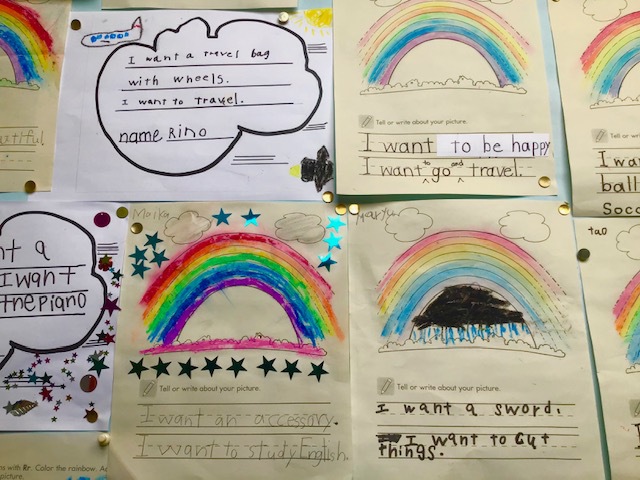 I want a travel bag
with wheels.
I want to travel.
name Rino
Tell or write about your picture.
I want to be happy
I want to go and travel.
autiful
I wa
ball
Socc
nt a
I want
the piano
Moika
Tell or write about your picture.
I want an accessory.
I want to study English.
Tell or write about your picture.
I want a sword.
I want to cut
things.
tao
s with Rr. Color the rainbow. Ac
picture.